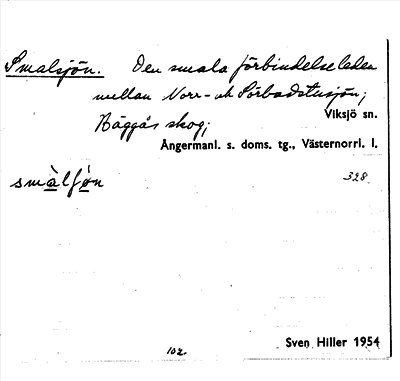 Smalsjön. Den smala förbindelseleden
mellan Norr- och Sörbadstusjön;
Häggås skog;
Viksjö sn.
Ångermanl. s. doms. tg., Västernorrl. l.
smàlʃòn
328
102.
Sven Hiller 1954